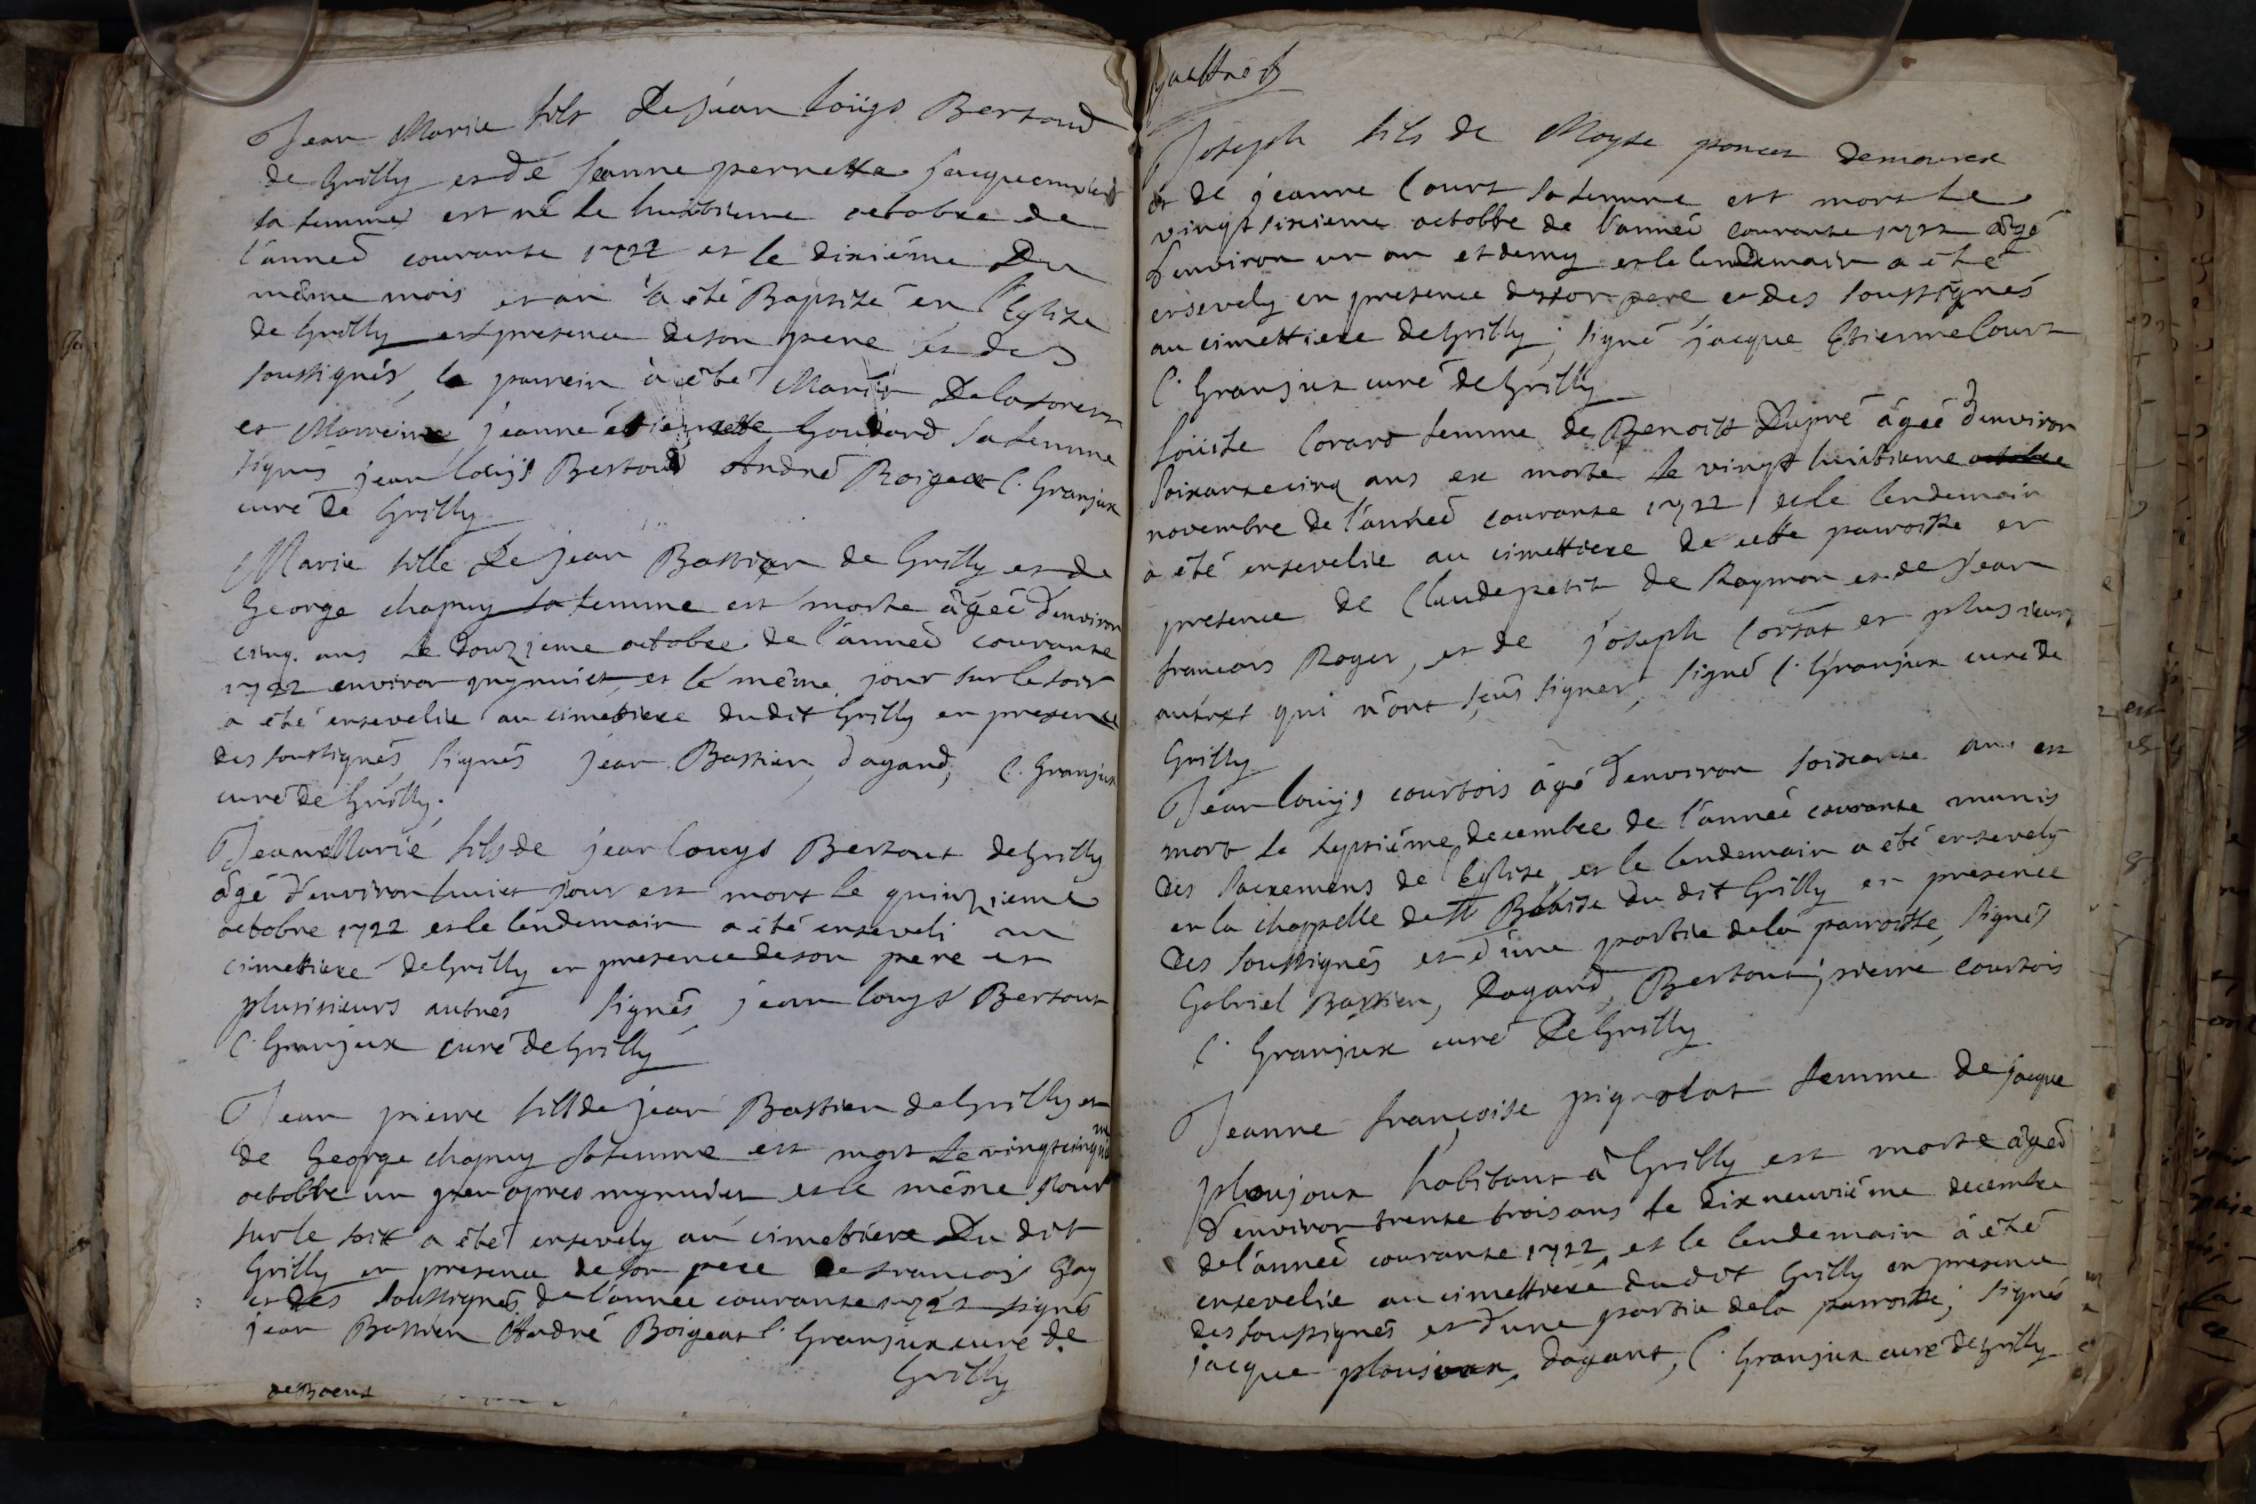 Jean Marie fils De jean loüys Bertoud
de Grilly et de Jeanne pernetta
sa femme est né le huictieme octobre de
l'anneé courante 1722 et le dixiéme Du
même mois et an a été Baptizé en l'Eglise
de Grilly en presence de son pere et des
soussignés, le parrein à été Marin Delaforest
et Marreine jeanne étiennette Goudard sa femme
signés jean loüys Bertoud André Boigeat C. Granjux
curé de Grilly
Marie fille De jean Bastian de Grilly et de
George chapuy sa femme est morte âgeé d'environ
cinq ans le douzieme octobre de l'anneé courante
1722 environ mynuict, et le même jour sur le soir
a été ensevelie au cimetiere dudit Grilly en presence
des soussignés, signés jean Bastian, dagand, C. Granjux
curé de Grilly.
Jean Marie fils de jean louys Bertout de Grilly
âgé d'environ huict jour est mort le quinzieme
octobre 1722 et le lendemain a été enseveli au
cimettiere de Grilly en presence de son pere et
plusisieurs autres signés jean louys Bertout
C. Granjux curé de Grilly
Jean pierre fils de jean Bastian de Grilly et
de George chapuy sa femme est mort le vingtcinq
octobre un peu apres mynuict et le même jour
sur le soir a été ensevely au cimetiere Du dit
Grilly en presence de son pere de francois Gay
et des soussignés de l'année courante 1722 signés
jean Bastian André Boigeat C. Granjux curé de
Grilly
Joseph fils de Moyse poncet demourex
et de jeanne Court sa femme est mort le
vingt sixieme octobre de l'anneé courante 1722 âgé
d'environ un an et demy et le lendemain a été
ensevely en presence de son pere et des soussignés
au cimettiere de Grilly; signé jacque Etienne Court
C. Granjux curé de Grilly
loüise femme de Benoist Dupré âgeé d'environ
soixante cinq ans est morte le vingt huictieme octobre
novembre de l'anneé courante 1722 et le lendemain
a été ensevelie au cimettiere de cette parroisse en
presence de Claude petit de Raymon et de Jean
francois Roger, et de joseph et plusieurs
autres qui n'ont sçeûs signer, signé C. Granjux curé de
Grilly
Jean louijs courtois âgé d'environ soixante ans est
mort le septiéme decembre de l'anneé courante munis
des sacremens de l'Eglise et le lendemain a été ensevely
en la chappelle de du dit Grilly en presence
des soussignés et d'une partie de la parroisse, signés
Gabriel Bastian, Dagand, Bertout, pierre courtois
C. Granjux curé De Grilly
Jeanne françoise pignolat femme de jacque
ploujoux habitant à Grilly est morte âgeé
d'environ trente trois ans le dix neuviéme decembre
de l'anneé courante 1722 et le lendemain à été
ensevelie au cimettiere dudit Grilly en presence
des soussignés et d'une partie de la parroisse; signés
jacque ploujoux, dagant, C. Granjux curé de Grilly